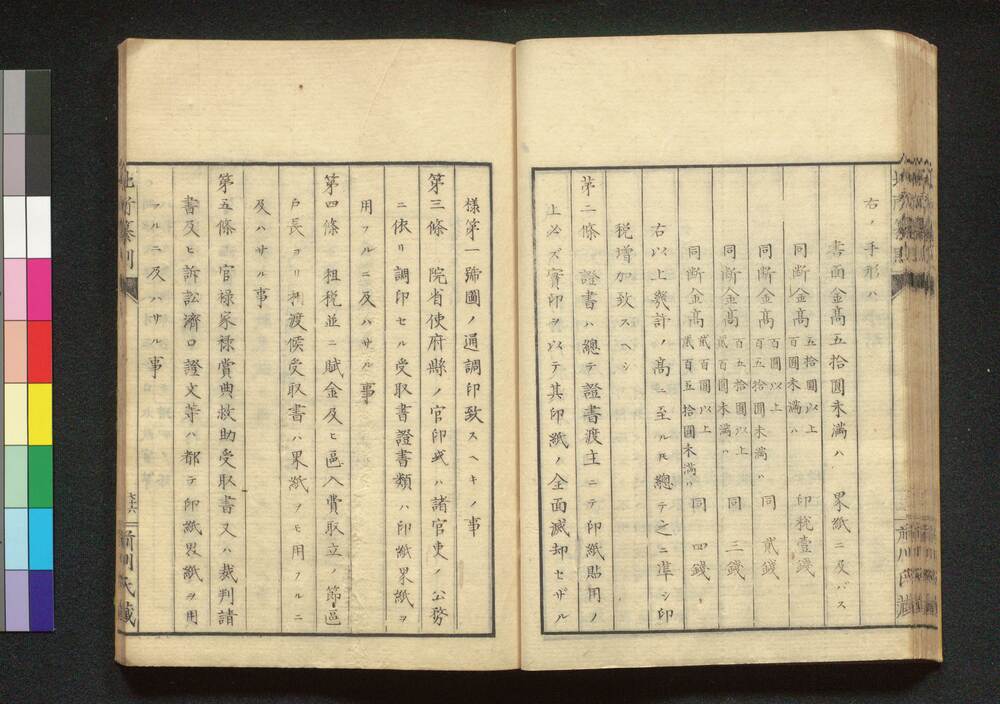 右ノ手形ハ
書面金髙五拾圓未満ハ 界紙ニ及バス
同断金髙 五拾圓以上 百圓未満ハ 印税壹錢
同断金髙 百圓以上 百五拾圓未満ハ 同 貮錢
同断金髙 百五拾圓以上 貮百圓未満ハ 同 三錢
同断金髙 貮百圓以上 貮百五拾圓未満ハ 同 四錢
右以上幾許ノ髙ニ至ルモ總テ之ニ準シ印
税増加致スヘシ
苐二條 證書ハ總テ證書渡主ニテ印紙貼用ノ
上必ズ實印ヲ以テ其印紙ノ全面滅却セザル
様苐一號圖ノ通調印致スヘキノ事
苐三條 院省使府縣ノ官印或ハ諸官吏ノ公務
ニ依リ調印セル受取書證書類ハ印紙界紙ヲ
用フルニ及ハサル事
苐四條 租税並ニ賦金及ヒ區入費取立ノ節區
戸長ヨリ相渡候受取書ハ界紙ヲモ用フルニ
及ハサル事
苐五條 官禄家禄賞典救助受取書又ハ裁判諸
書及ヒ訴訟濟口證文䓁ハ都テ印紙界紙ヲ用
フルニ及ハサル事
前川氏藏